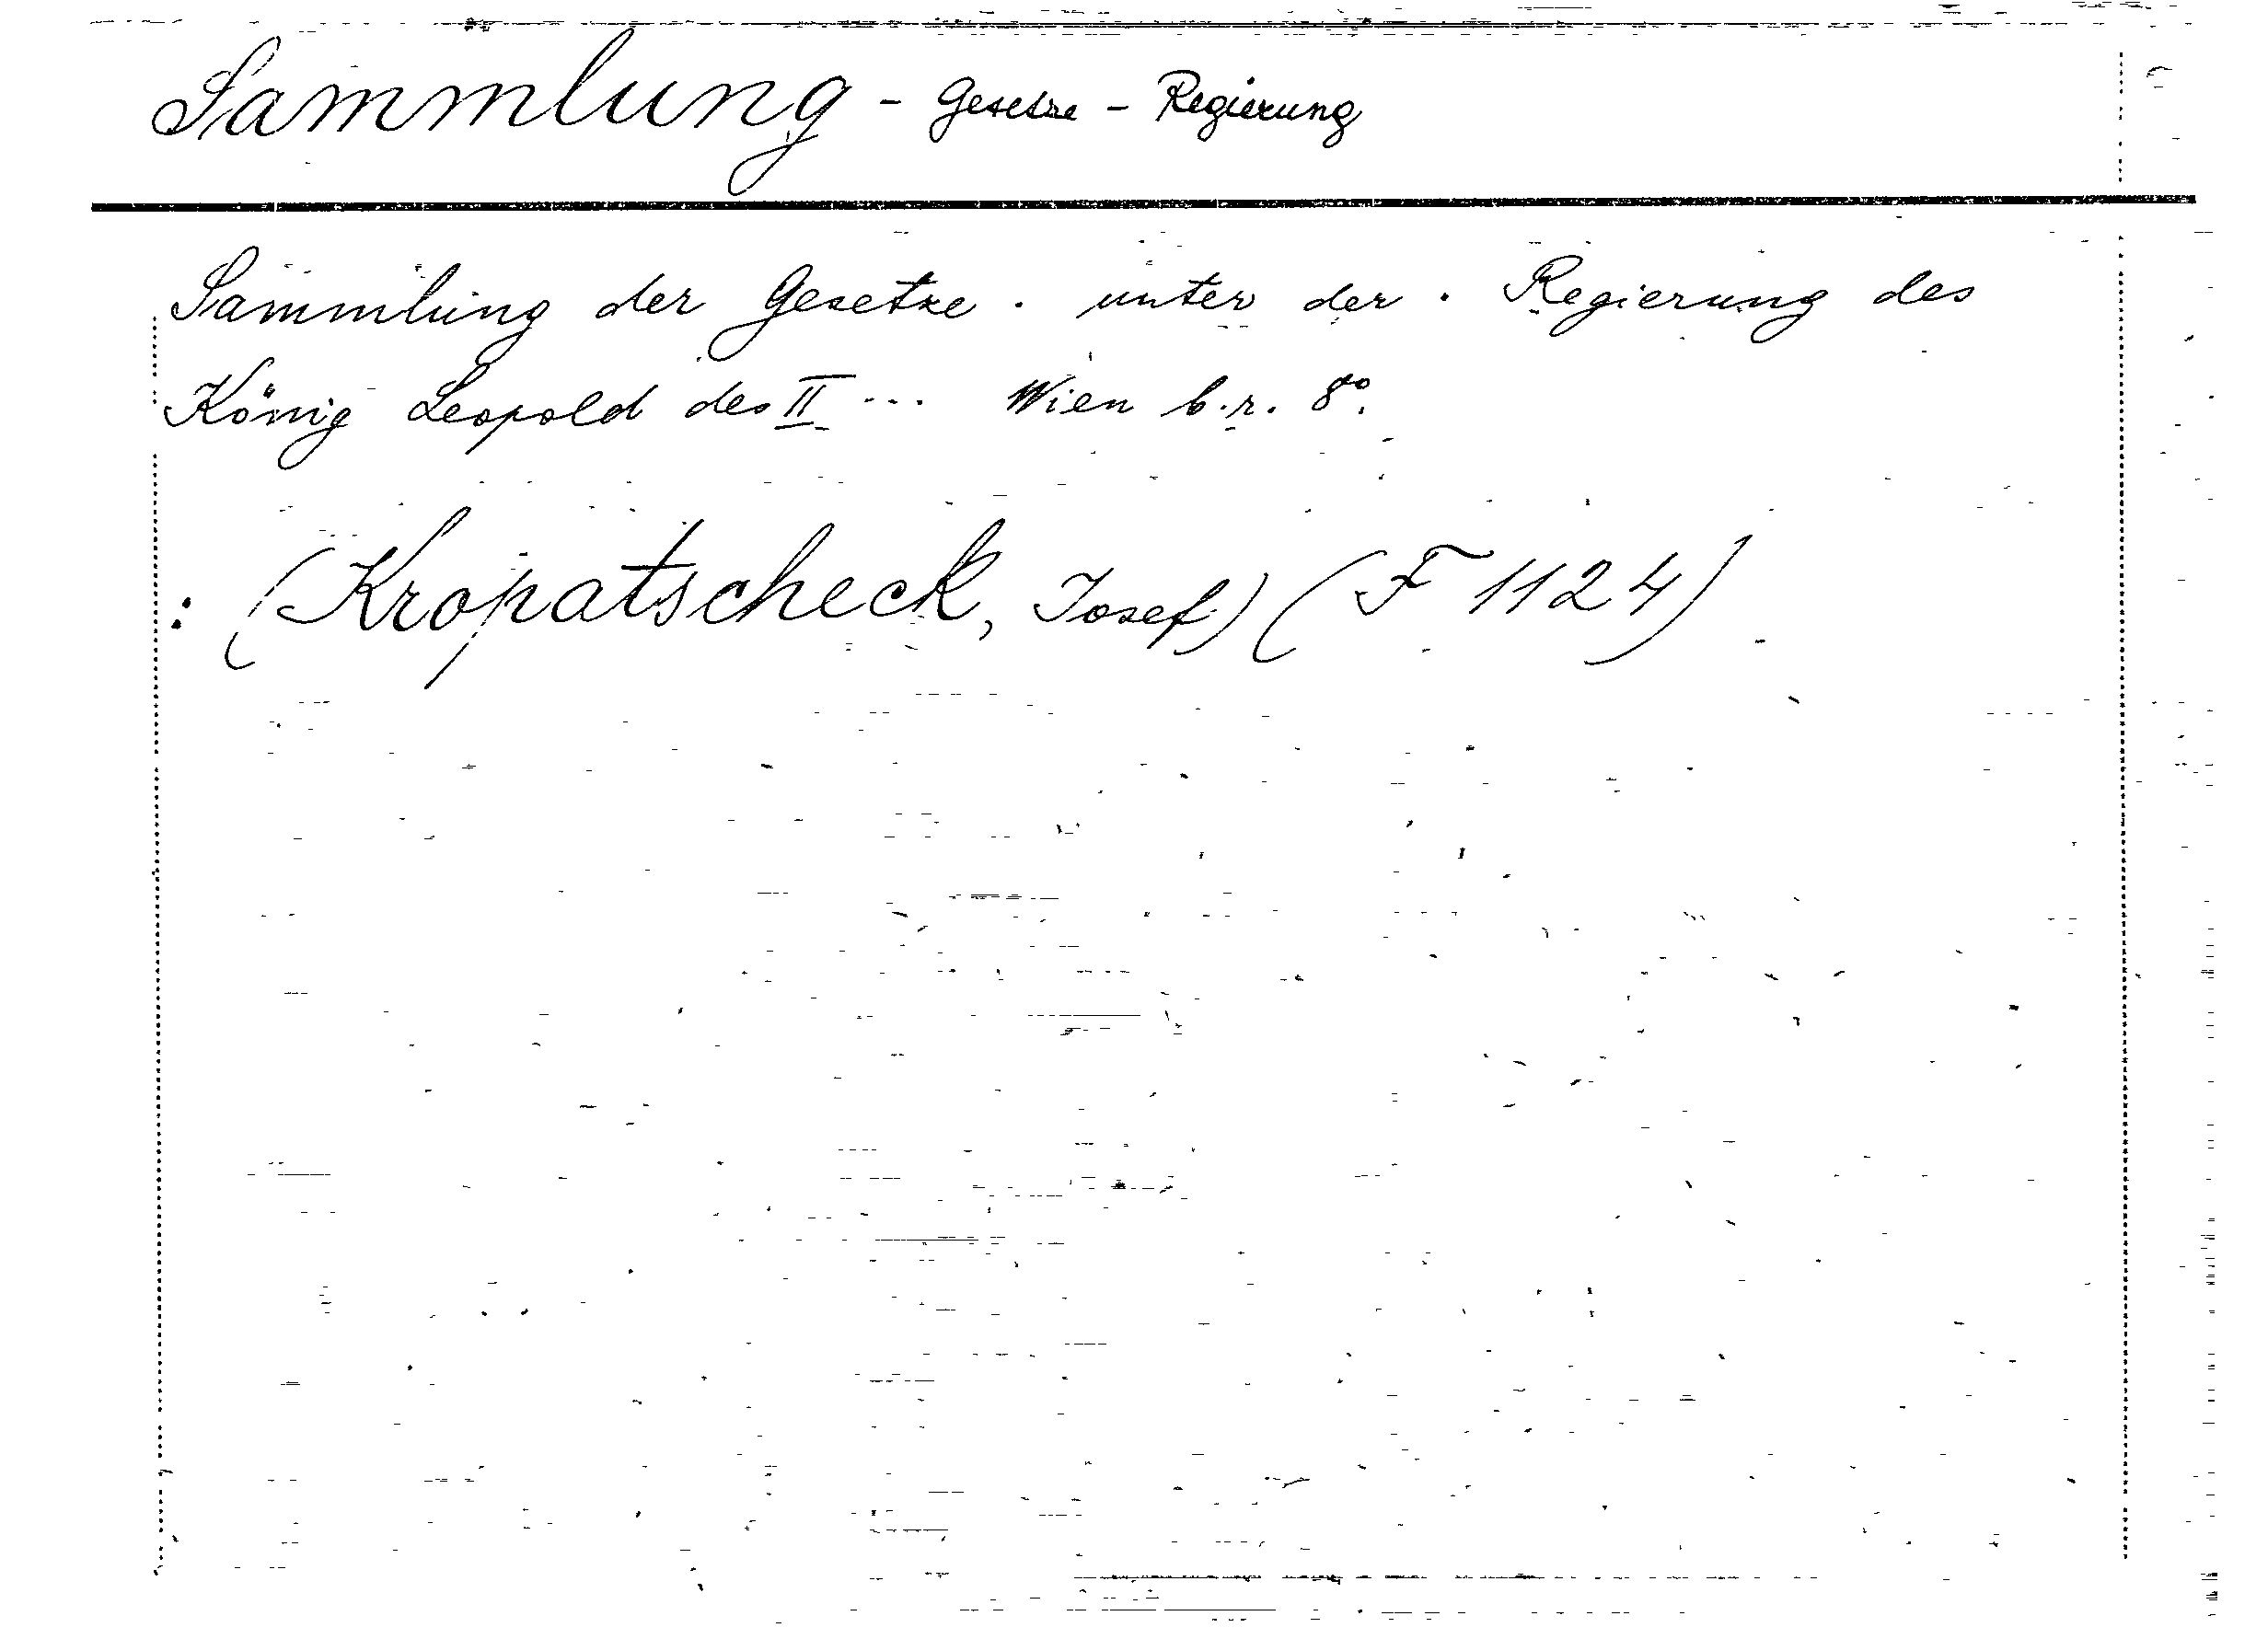 Sammlung - Gesetze - Regierung
Sammlung der Gesetze . unter der . Regierung des
König Leopold des II ... Wien b.r. 8°.
: (Kropatscheck, Josef) (F 1124)